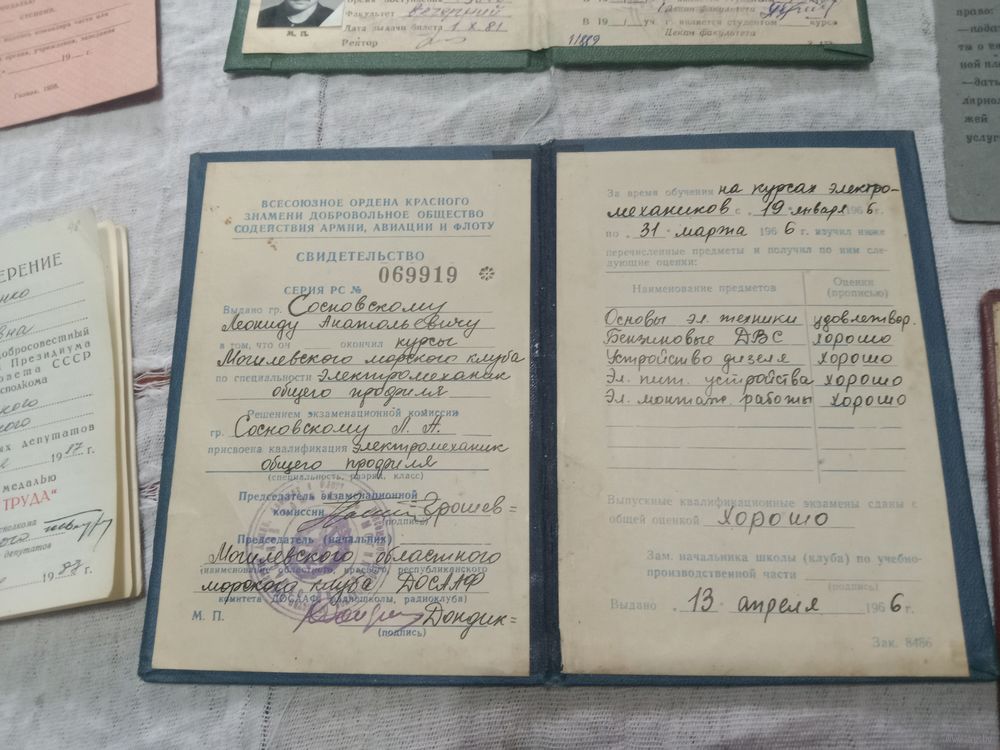 Факультет Вечерний
Дата выдачи билета 1 X 81
М. П.
Ректор
В 19 / уч. г. является студентом курса
Декан факультета
Гознак. 1956.
право:
ЕРЕНИЕ
добросовестный
Президиума
СССР
депутатов
1987 г.
медалью
ТРУДА"
депутатов
1987 г.
ВСЕСОЮЗНОЕ ОРДЕНА КРАСНОГО
ЗНАМЕНИ ДОБРОВОЛЬНОЕ ОБЩЕСТВО
СОДЕЙСТВИЯ АРМИИ, АВИАЦИИ И ФЛОТУ
СВИДЕТЕЛЬСТВО
069919
СЕРИЯ РС №
Выдано гр. Сосновскому
Леониду Анатольевичу
в том, что он окончил курсы
Могилевского морского клуба
по специальности электромеханик
общего профиля
Решением экзаменационной комиссии
гр. Сосновскому Л. А.
присвоена квалификация электромеханик
общего профиля
(специальность, разряд, класс)
Председатель экзаменационной
комиссии Ерошев=
(подпись)
Председатель (начальник)
Могилевского областного
(наименование областного, краевого, республиканского
морского клуба ДОСААФ
комитета ДОСААФ, радиошколы, радиоклуба)
М. П. Дондик=
(подпись)
За время обучения на курсах электро-
механиков с „19" января 1966 г.
по „31" марта 1966 г. изучил ниже
перечисленные предметы и получил по ним сле-
дующие оценки:
Наименование предметов Оценки (прописью)
Основы эл. техники удовлетвор.
Бензиновые ДВС хорошо
Устройство дизеля хорошо
Эл. пит. устройства хорошо
Эл. монтаж. работы хорошо
Выпускные квалификационные экзамены сданы с
общей оценкой хорошо
Зам. начальника школы (клуба) по учебно-
производственной части
(подпись)
Выдано „13" апреля 1966 г.
Зак. 8486